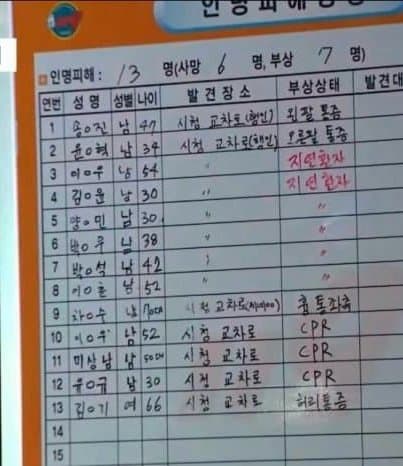 인명피해
인명피해 : 13 명(사망 6 명, 부상 7 명)
연번 성명 성별 나이 발견장소 부상상태 발견대
1 송o진 남 47 시청 교차로(행인) 왼팔 통증
2 윤o혁 남 34 시청 교차로(행인) 오른팔 통증
3 이o우 남 54 〃 지연환자
4 김o운 남 30 〃 지연환자
5 양o민 남 30 〃 〃
6 박o우 남 38 〃 〃
7 박o석 남 42 〃 〃
8 이o훈 남 52 〃 〃
9 차o수 남 70대 시청 교차로 흉통좌측
10 이o우 남 52 시청 교차로 CPR
11 미상남 남 50대 시청 교차로 CPR
12 유o규 남 30 시청 교차로 CPR
13 김o기 여 66 시청 교차로 허리통증
14
15